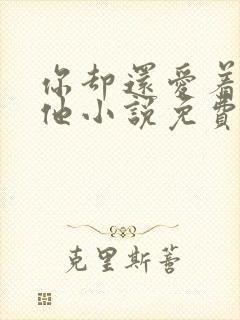 你却還愛着
他小說免費
克里斯蒼